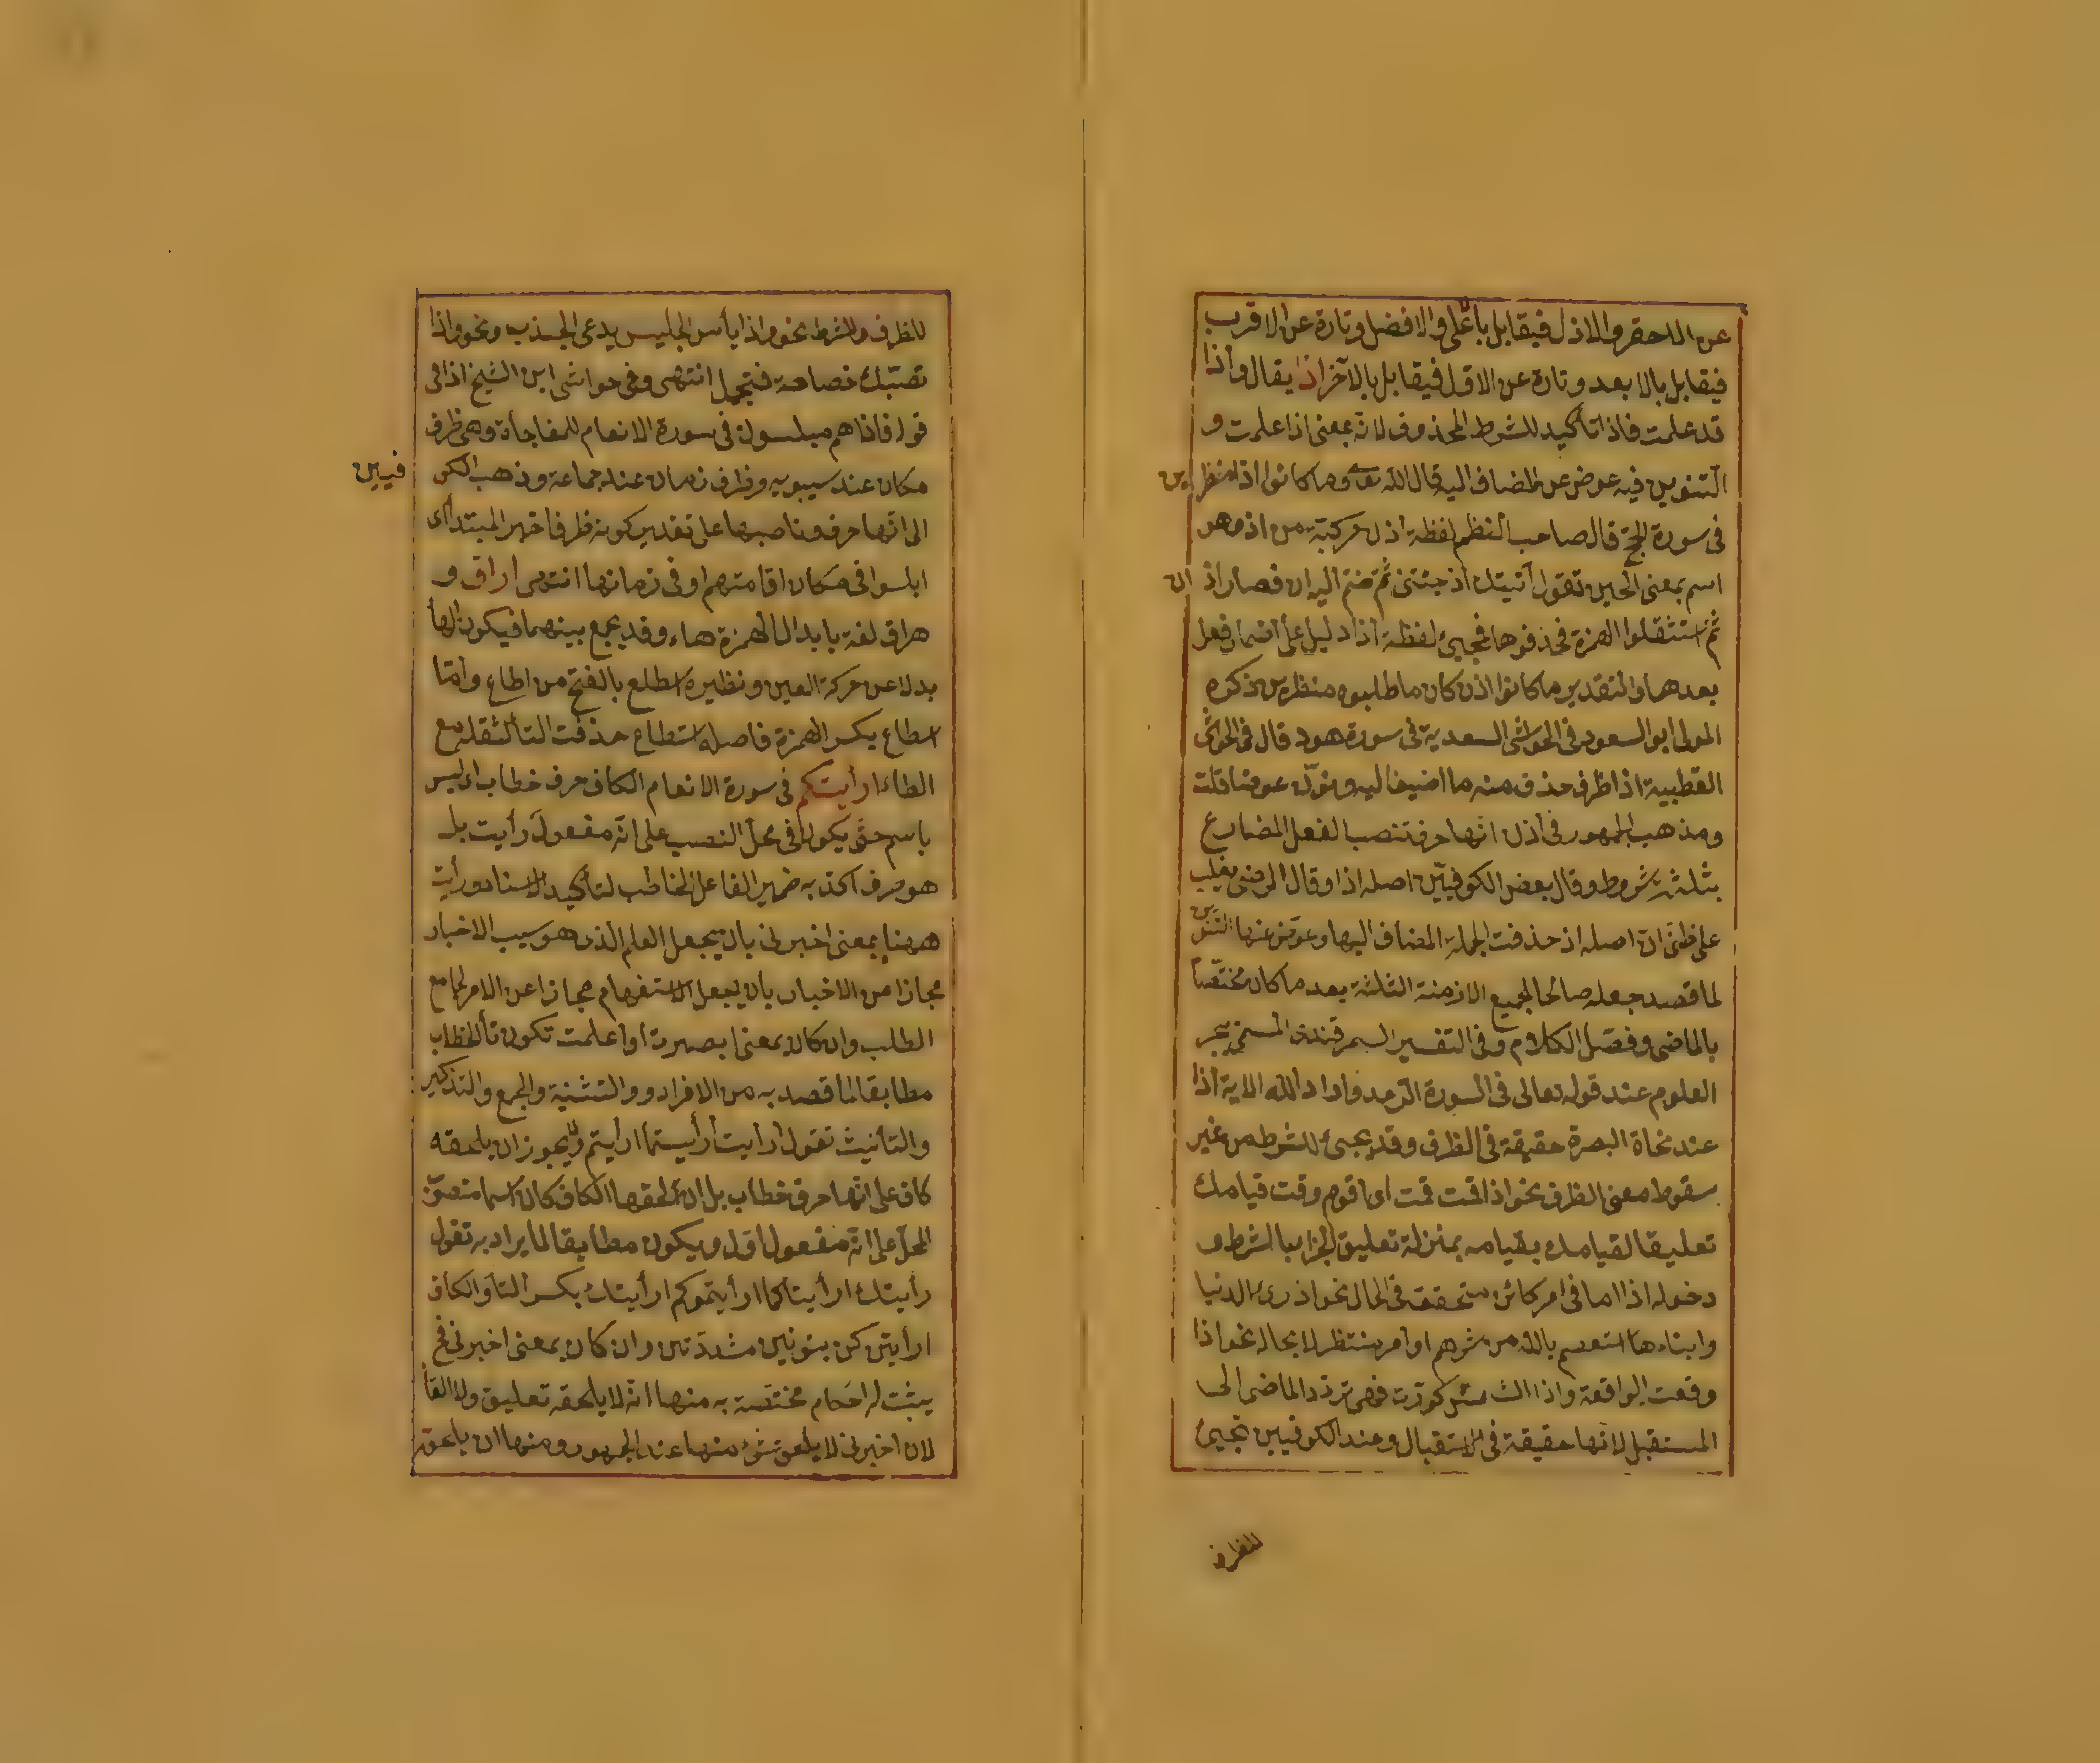 عن الاحقر والاذل فيقابل بالاعلى والافضل وتارة عن الاقرب
فيقابل بالابعد وتارة عن الاقل فيقابل بالآخر اذا يقال واذا
قد علمت فاذا تأكيد للشرط المحذوف لانه بمعنى اذا علمت و
التنوين فيه عوض عن المضاف اليه قال الله تعـ وما كانوا اذا منظرين
فى سورة الحج قال صاحب النظم لفظة اذن مركبة من اذ وهو
اسم بمعنى الحين تقول آتيتك اذ جئتنى ثم ضم اليه ان فصار اذ ان
ثم استثقلوا الهمزة فحذفوها فمجيئ لفظة اذا دليل على اضمار فعل
بعدها والتقدير ما كانوا اذن كان ما طلبوه منظرين ذكره
المولى ابو السعود فى الحواشى السعدية فى سورة هود قال فى الحواشى
القطبية اذا ظرف حذف منه ما اضيف اليه ونوّن عوضا قلت
ومذهب الجمهور فى اذن انها حرف تنصب الفعل المضارع
بثلثة شروط وقال بعض الكوفيين اصله اذا وقال الرضى يغلب
على ظنى ان اصله اذ حذفت الجملة المضاف اليها وعوض عنها التنوين
لما قصد جعله صالحا لجميع الازمنة الثلثة بعد ما كان مختصا
بالماضى وفصل الكلام وفى التفسير السمرقندى المسمى ببحر
العلوم عند قوله تعالى فى السورة الرعد واذا اراد الله الاية اذا
عند نحاة البصرة حقيقة فى الظرف وقد يجيئ للشرط من غير
سقوط معنى الظرف نحو اذا قمت قمت اى اقوم وقت قيامك
تعليقا لقيامك بقيامه بمنزلة تعليق الجزاء بالشرط و
دخوله اذا اما فى امر كائن متحقق فى الحال نحو اذ رى الدنيا
وابناءها استعصم بالله من شرهم او امر منتظر لا محالة نحو اذا
وقعت الواقعة واذا الشمس كورت فهى ترد الماضى الى
المستقبل لانها حقيقة فى الاستقبال وعند الكوفيين تجيئ
للظرف
للظرف وللشرط نحو واذا يأس الجليس يدعى الجندب ونحو واذا
تصبك خصاصة فتجمل انتهى وفى حواشى ابن الشيخ اذا فى
قوله فاذا هم مبلسون فى سورة الانعام للمفاجأة وهى ظرف
مكان عند سيبويه وظرف زمان عند جماعة وذهب الكوفيين
الى انها حرف وناصبها على تقدير كونه ظرفا خبر المبتدأ اى
ابلسوا فى مكان اقامتهم او فى زمانها انتهى اراق و
هراق لغة بابدال الهمزة هاء وقد يجمع بينهما فيكون الهأ
بدلا عن حركة العين ونظيره اسطاع بالفتح من اطاع واما
اسطاع بكسر الهمزة فاصله استطاع حذفت التأ لثقله مع
الطاء ارأيتكم فى سورة الانعام الكاف حرف خطاب اى ليس
باسم حتى يكون فى محل النصب على انه مفعول رأيت بل
هو حرف اكد به ضمير الفاعل المخاطب لتأكيد الاسناد ورأيت
ههنا بمعنى اخبرنى بان يجعل العلم الذى هو سبب الاخبار
مجازا عن الاخبار بان يجعل الاستفهام مجازا عن الامر لجامع
الطلب وان كان بمعنى ابصرت او اعلمت تكون تأ الخطاب
مطابقا لما قصد به من الافراد و والتثنية والجمع والتذكير
والتأنيث تقول أرأيت أرأيتما ارأيتم ولا يجوز ان يلحقه
كاف على انها حرف خطاب بل ان الحقها الكاف كان اسما منصوب
المحل على انه مفعول اول ويكون مطابقا لما يراد به تقول
رأيتك ارأيتاكما ارأيتموكم ارأيتك بكسر التأ والكاف
ارأيتن كن بنونين مشددتين وان كان بمعنى اخبرنى فح
يثبت له احكام مختصة به منها انه لا يلحقه تعليق ولا الغأ
لان اخبرنى لا يلحق شئ منها عند الجمهور ومنها ان يلحق